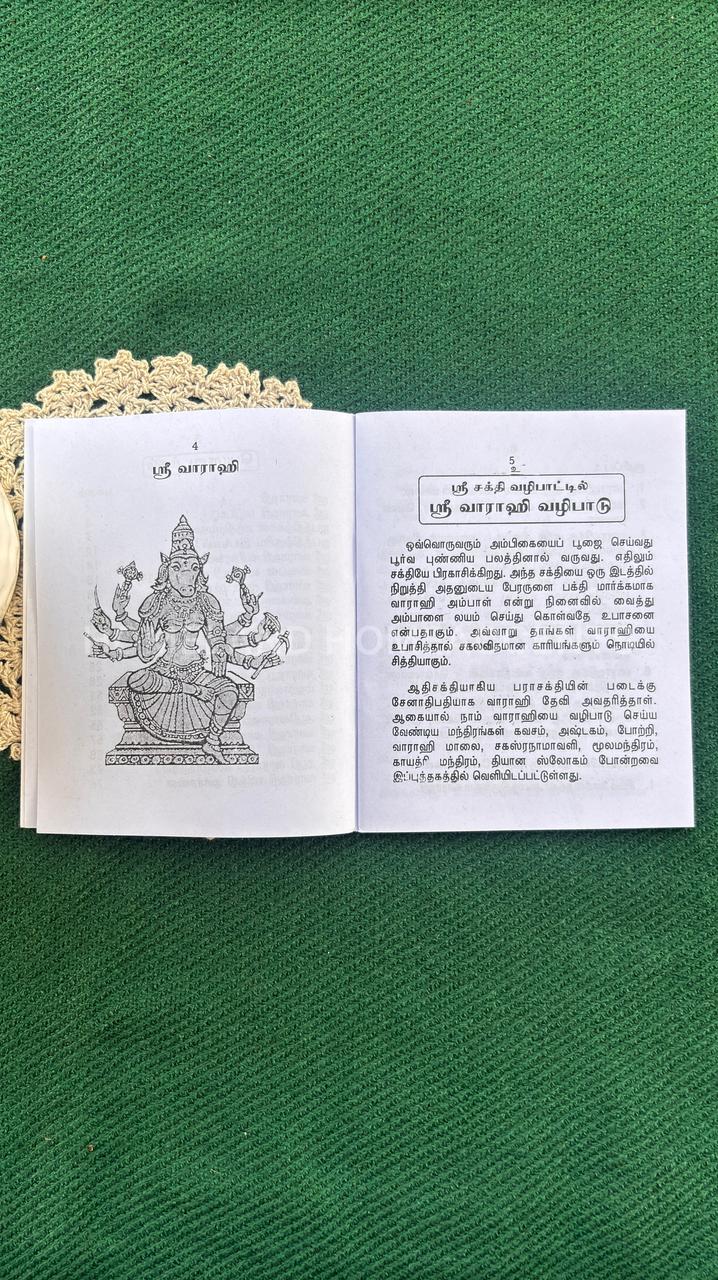 4
ஸ்ரீ வாராஹி
5
உ
ஸ்ரீ சக்தி வழிபாட்டில்
ஸ்ரீ வாராஹி வழிபாடு
ஒவ்வொருவரும் அம்பிகையைப் பூஜை செய்வது
பூர்வ புண்ணிய பலத்தினால் வருவது. எதிலும்
சக்தியே பிரகாசிக்கிறது. அந்த சக்தியை ஒரு இடத்தில்
நிறுத்தி அதனுடைய பேரருளை பக்தி மார்க்கமாக
வாராஹி அம்பாள் என்று நினைவில் வைத்து
அம்பாளை லயம் செய்து கொள்வதே உபாசனை
என்பதாகும். அவ்வாறு தாங்கள் வாராஹியை
உபாசித்தால் சகலவிதமான காரியங்களும் நொடியில்
சித்தியாகும்.
ஆதிசக்தியாகிய பராசக்தியின் படைக்கு
சேனாதிபதியாக வாராஹி தேவி அவதரித்தாள்.
ஆகையால் நாம் வாராஹியை வழிபாடு செய்ய
வேண்டிய மந்திரங்கள் கவசம், அஷ்டகம், போற்றி,
வாராஹி மாலை, சகஸ்ரநாமாவளி, மூலமந்திரம்,
காயத்ரி மந்திரம், தியான ஸ்லோகம் போன்றவை
இப்புத்தகத்தில் வெளியிடப்பட்டுள்ளது.